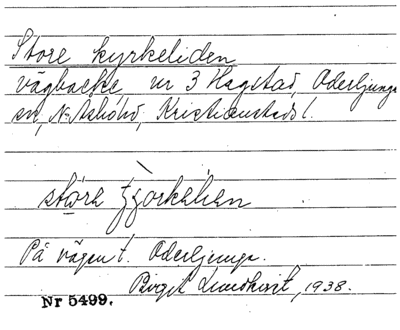 Store kyrkeliden
vägbacke, nr 3 Hagstad, Oderljunga
sn, N. Åsbo hd, Kristianstads l.
störe
På vägen t. Oderljunga.
Birgit Lundkvist, 1938.
Nr 5499.